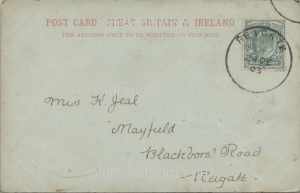 POST CARD - GREAT BRITAIN & IRELAND
THE ADDRESS ONLY TO BE WRITTEN ON THIS SIDE.
REIGATE
03
Miss K. Jeal
Mayfield
Blackboro' Road
Reigate.